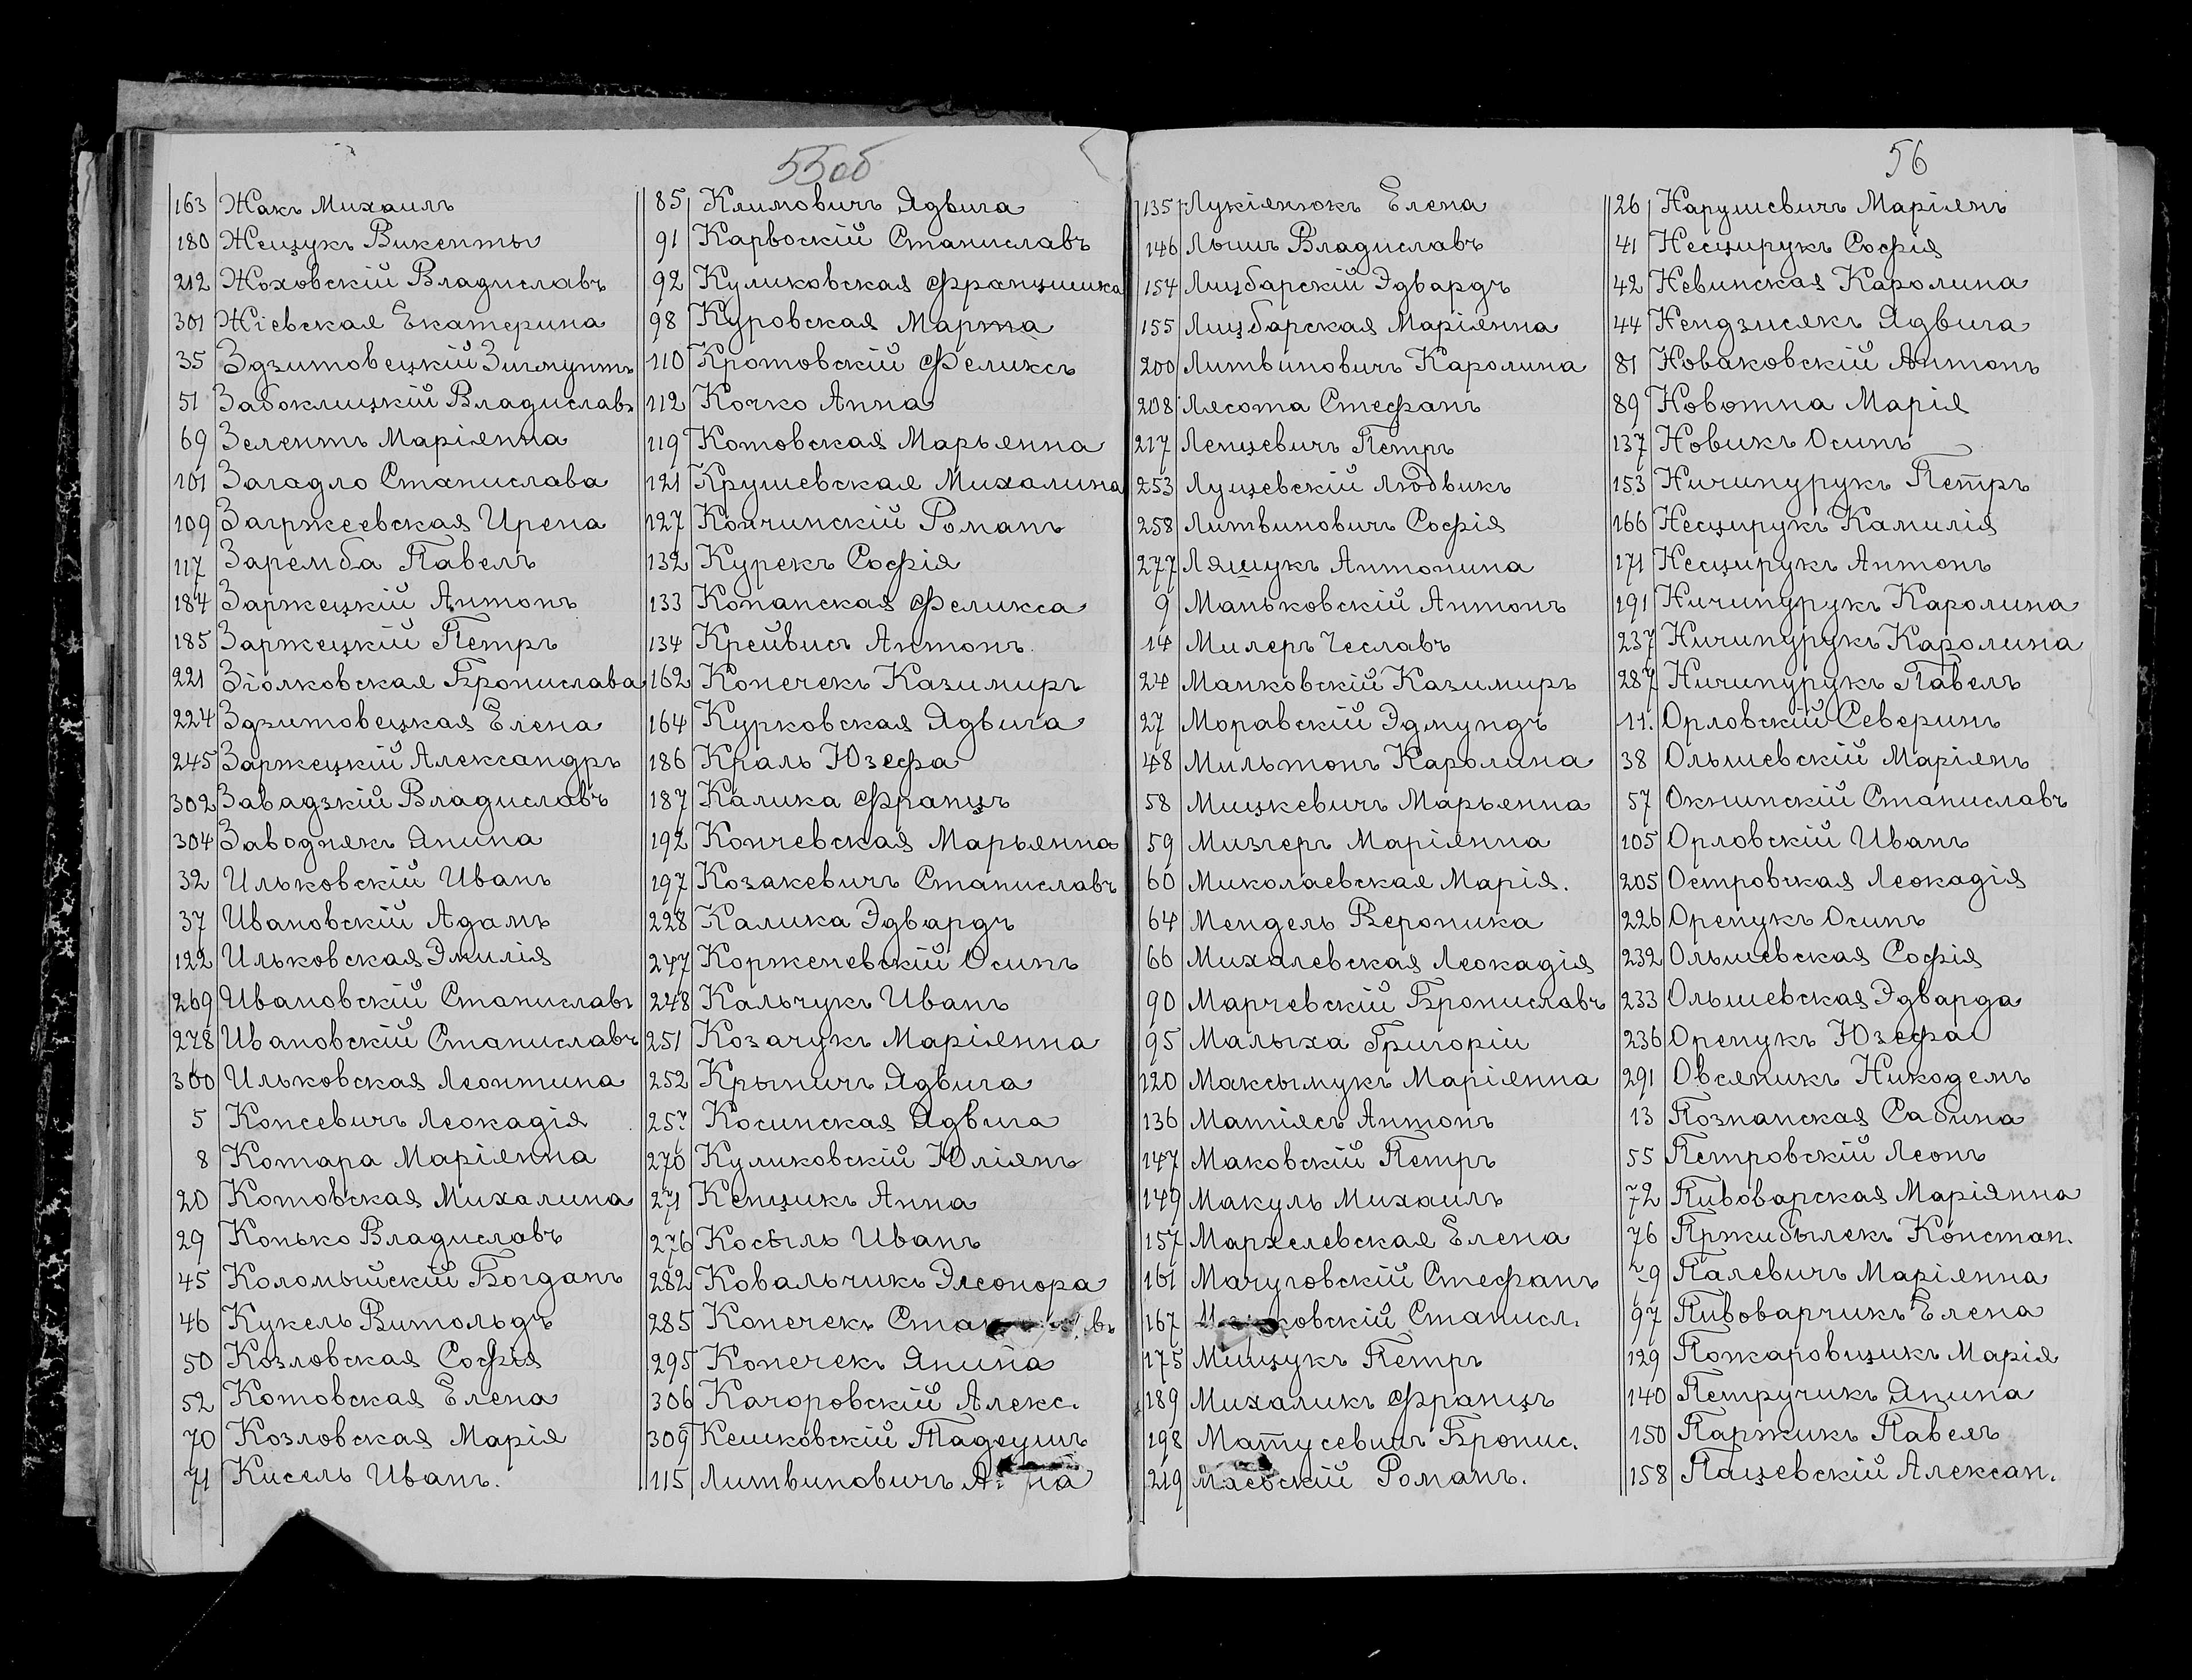 55об
163 Жакъ Михаилъ
180 Жещукъ Викенты
212 Жоховскій Владиславъ
301 Жіевская Екатерина
35 Здзитовецкій Зигмунтъ
51 Забоклицкій Владиславъ
69 Зелентъ Маріянна
101 Загадло Станислава
109 Загржеевская Ирена
117 Заремба Павелъ
184 Заржецкій Антонъ
185 Заржецкій Петръ
221 Зіолковская Бронислава
224 Здзитовецкая Елена
245 Заржецкій Александръ
302 Завадзкій Владиславъ
304 Заводнякъ Янина
32 Ильковскій Иванъ
37 Ивановскій Адамъ
122 Ильковская Эмилія
269 Ивановскій Станиславъ
278 Ивановскій Станиславъ
300 Ильковская Леонтина
5 Консевичъ Леокадія
8 Котара Маріянна
20 Котовская Михалина
29 Конько Владиславъ
45 Коломыйскій Богданъ
46 Кукель Витольдъ
50 Козловская Софія
52 Котовская Елена
70 Козловская Марія
71 Кисель Иванъ.
85 Климовичъ Ядвига
91 Карвоскій Станиславъ
92 Куликовская Францишка
98 Куровская Марта
110 Кротовскій Феликсъ
112 Кочко Анна
119 Котовская Марьянна
121 Крушевская Михалина
127 Кончинскій Романъ
132 Курекъ Софія
133 Копанская Феликса
134 Крейвисъ Антонъ.
162 Конечекъ Казимиръ
164 Курковская Ядвига
186 Краль Юзефа
187 Калика Францъ
192 Кончевская Марьянна
197 Козакевичъ Станиславъ
228 Калика Эдвардъ
247 Корженевскій Осипъ
248 Кальчукъ Иванъ
251 Козачукъ Маріянна
252 Крыничъ Ядвига
257 Косинская Ядвига
270 Куликовскій Юліянъ
271 Кенцикъ Анна
276 Косылъ Иванъ
282 Ковальчикъ Элеонора
285 Конечекъ
295 Конечекъ Янина
306 Качоровскій Алекс.
309 Кешковскій Тадеушъ
115 Литвиновичъ
56
135 Лукіянюкъ Елена
146 Лышъ Владиславъ
154 Лицбарскій Эдвардъ
155 Лицбарская Маріянна
200 Литвиновичъ Каролина
208 Лясота Стефанъ
217 Ленцевичъ Петръ
253 Лущевскій Людвикъ
258 Литвиновичъ Софія
277 Ляшукъ Антонина
9 Маньковскій Антонъ
14 Милеръ Чеславъ
24 Манковскій Казимиръ
27 Моравскій Эдмундъ
48 Мильтонъ Каролина
58 Мицкевичъ Марьянна
59 Мизгеръ Маріянна
60 Миколаевская Марія.
64 Мендель Вероника
66 Михалевская Леокадія
90 Марчевскій Брониславъ
95 Малыха Григорій
120 Максымукъ Маріянна
136 Матіясъ Антонъ
147 Маковскій Петръ
149 Макуль Михаилъ
157 Мархелевская Елена
161 Мачуговскій Стефанъ
167 Станисл.
175 Мищукъ Петръ
189 Михаликъ Францъ
198 Матусевичъ Бронис.
219 Маевскій Романъ.
26 Нарушевичъ Маріянъ
41 Несцирукъ Софія
42 Невинская Каролина
44 Нендзиякъ Ядвига
81 Новаковскій Антонъ
89 Новотна Марія
137 Новикъ Осипъ
153 Ничипурукъ Петръ
166 Несцирукъ Камилія
171 Несцирукъ Антонъ
191 Ничипурукъ Каролина
237 Ничипурукъ Каролина
287 Ничипурукъ Павелъ
11. Орловскій Северинъ
38 Ольшевскій Маріянъ
57 Окнинскій Станиславъ
105 Орловскій Иванъ
205 Островская Леокадія
226 Оренукъ Осипъ
232 Ольшевская Софія
233 Ольшевская Эдварда
236 Оренукъ Юзефа
291 Овсяникъ Никодемъ
13 Познанская Сабина
55 Петровскій Леонъ
72 Пивоварская Маріянна
76 Пржибылекъ Констан.
79 Палевичъ Маріянна
97 Пивоварчикъ Елена
129 Пожаровщикъ Марія
140 Петручикъ Янина
150 Паржикъ Павелъ
158 Пащевскій Алексан.